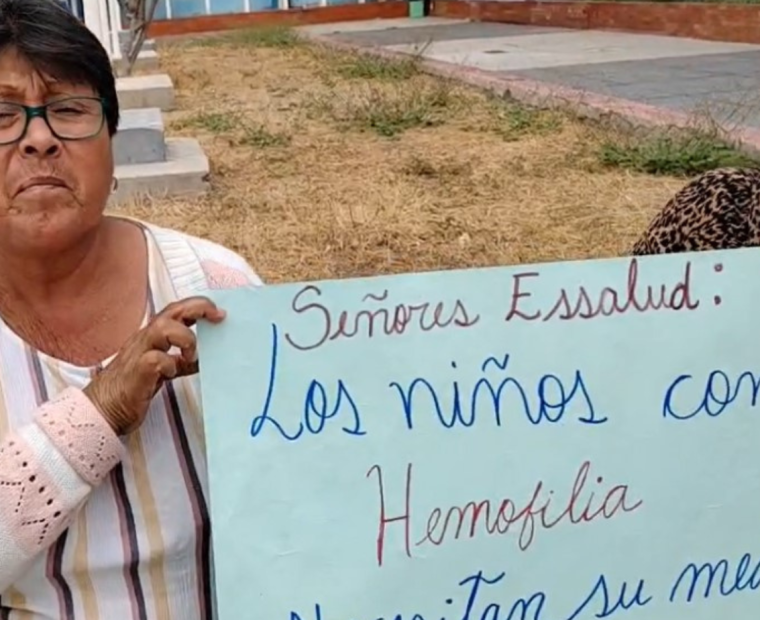 Señores Essalud:
Los niños con
Hemofilia
Necesitan su me